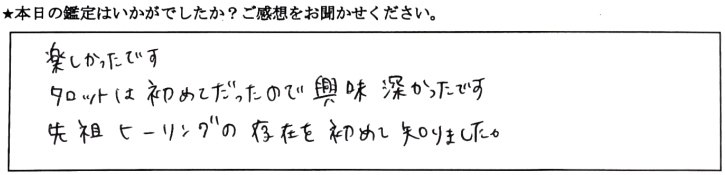 ★本日の鑑定はいかがでしたか？ご感想をお聞かせください。
楽しかったです
タロットは初めてだったので興味深かったです
先祖ヒーリングの存在を初めて知りました。